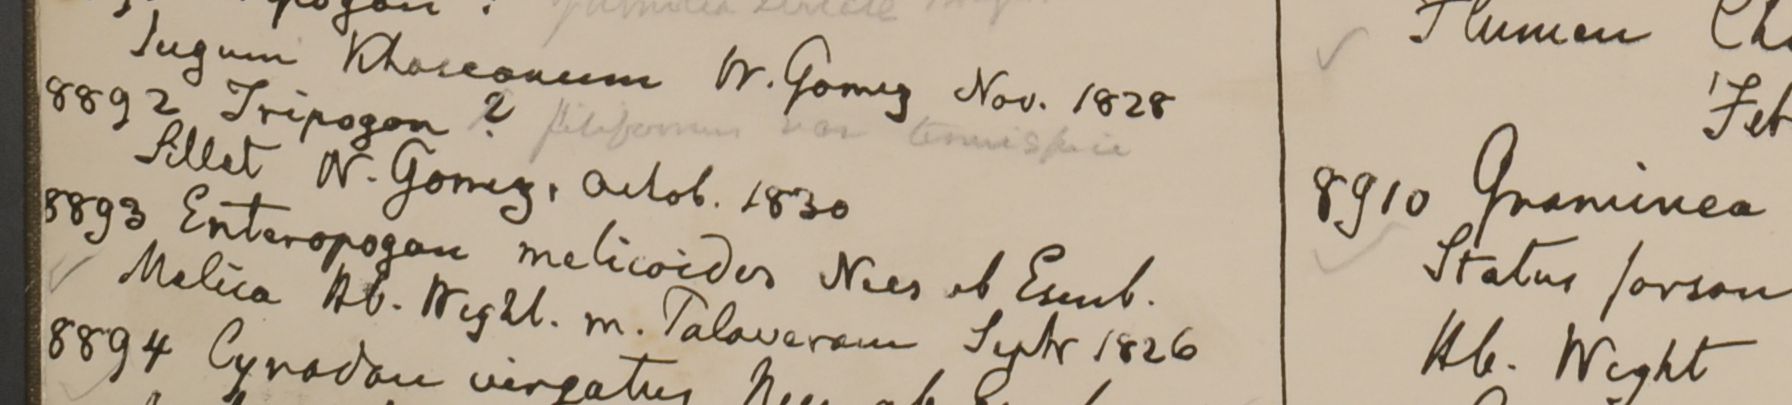 Jugum Khaseanum W. Gomez Nov. 1828
8892 Tripogon ? filiformis var tenuispica
Sillet W. Gomez, Octob. 1830
8893 Enteropogon melicoides Nees ab Esenb.
Melica Hb. Wight. m. Talaveram Septr 1826
8894 Cynodon virgatus Nees ab
Flumen
Feb
8910 Graminea
Status forsan
Hb. Wight